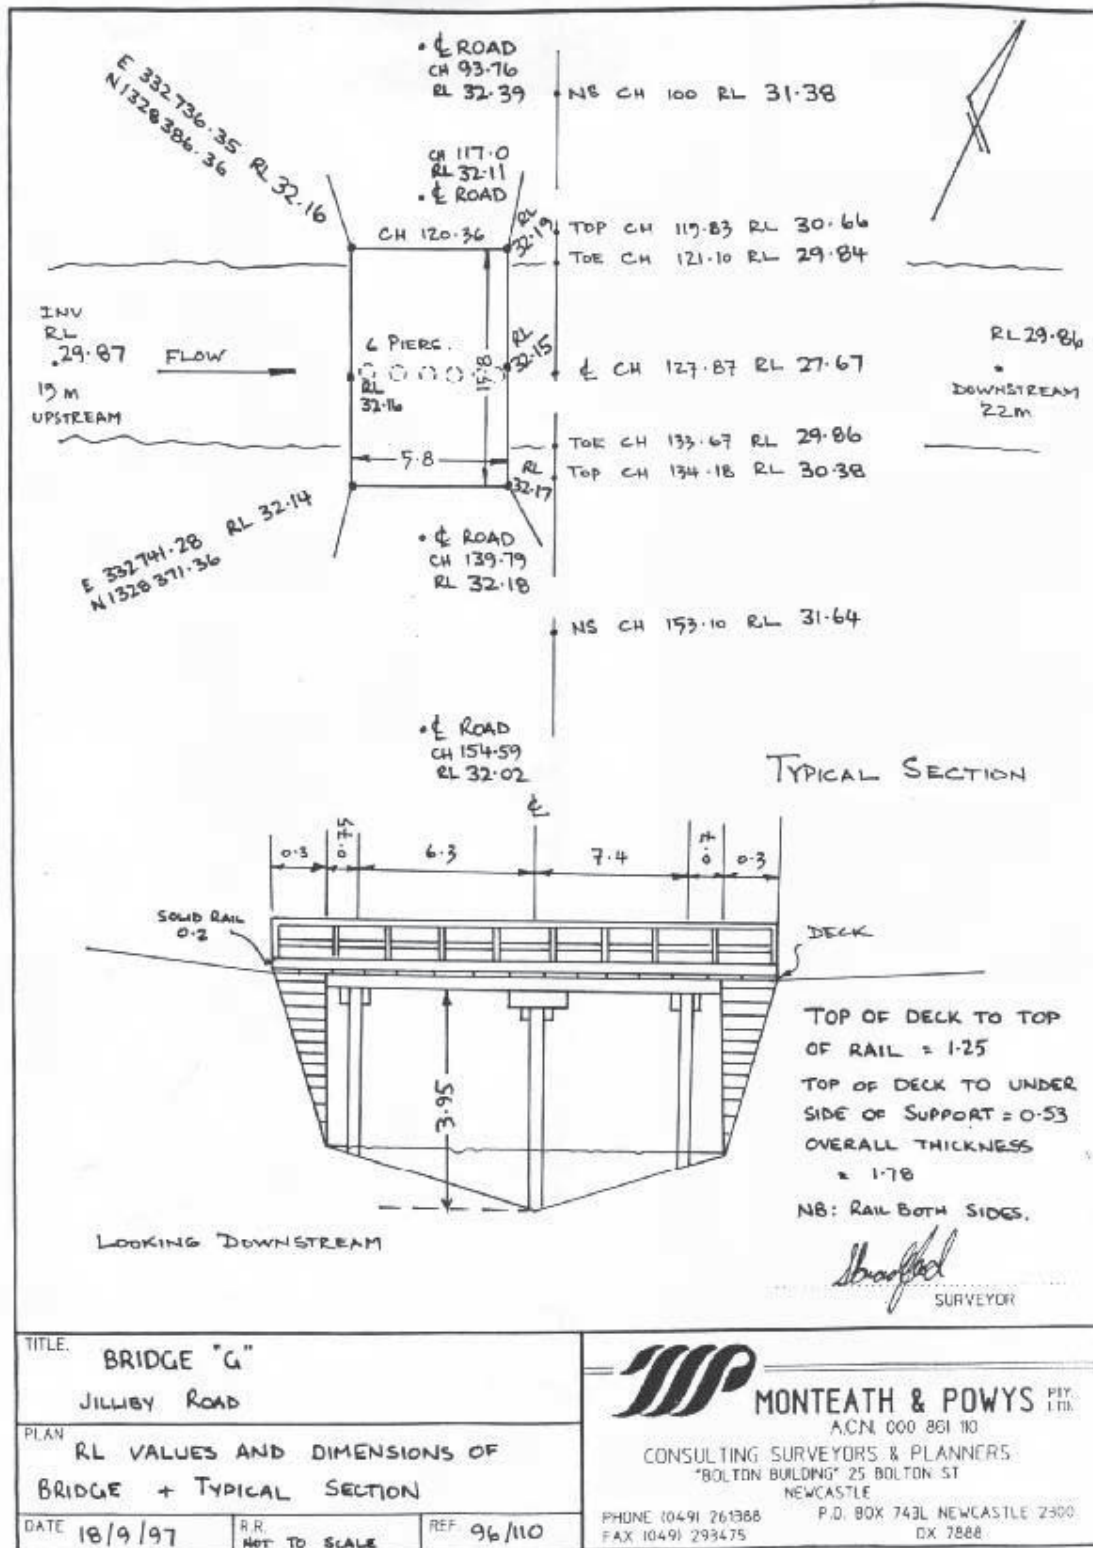 ℄ ROAD
CH 93.76
RL 32.39
NS CH 100 RL 31.38
E 332736.35 RL 32.16
N 1328386.36
CH 117.0
RL 32.11
℄ ROAD
CH 120.36
RL 32.19
TOP CH 119.83 RL 30.66
TOE CH 121.10 RL 29.84
INV
RL
29.87
19 m
UPSTREAM
FLOW
6 PIERS.
RL 32.16
15.8
RL 32.15
℄ CH 127.87 RL 27.67
RL 29.86
DOWNSTREAM
22m
TOE CH 133.67 RL 29.86
5.8
TOP CH 134.18 RL 30.38
RL 32.17
E 332741.28 RL 32.14
N 1328371.36
℄ ROAD
CH 139.79
RL 32.18
NS CH 153.10 RL 31.64
℄ ROAD
CH 154.59
RL 32.02
TYPICAL SECTION
℄
0.3 0.75 6.3 7.4 0.7 0.3
SOLID RAIL
0.2
DECK
3.95
TOP OF DECK TO TOP
OF RAIL = 1.25
TOP OF DECK TO UNDER
SIDE OF SUPPORT = 0.53
OVERALL THICKNESS
= 1.78
NB: RAIL BOTH SIDES.
LOOKING DOWNSTREAM
SURVEYOR
TITLE.
BRIDGE "G"
JILLIBY ROAD
PLAN
RL VALUES AND DIMENSIONS OF
BRIDGE + TYPICAL SECTION
DATE 18/9/97
R.R. NOT TO SCALE
REF 96/110
MONTEATH & POWYS PTY. LTD.
A.C.N. 000 861 110
CONSULTING SURVEYORS & PLANNERS
"BOLTON BUILDING" 25 BOLTON ST
NEWCASTLE
PHONE (049) 261388
P.O. BOX 743L NEWCASTLE 2300
FAX (049) 293475
DX 7888